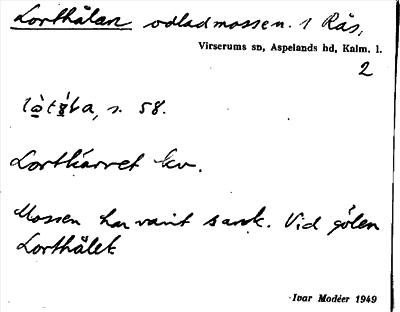 Lorthålan odladmossen. 1 Rås,
Virserums sn, Aspelands hd, Kalm. l.
2
s. 58.
Lortkärret kv.
Mossen har varit sank. Vid gölen
Lorthålet
Ivar Modéer 1949